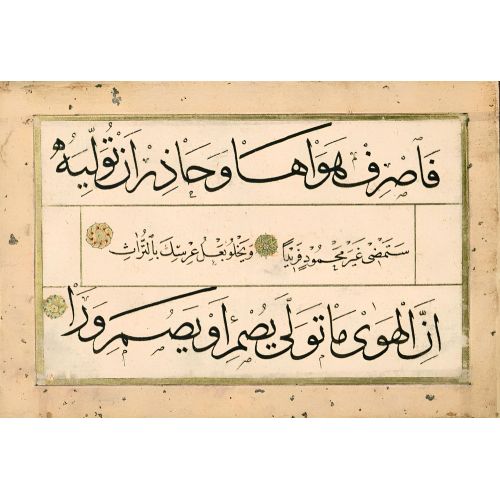 فَاصْرِفْ هَوَاهَا وَحَاذِرْ اَنْ تُوَلِّيَهُ
سَتَمْضِى غَيْرَ مَحْمُودٍ فَرِيْدًا وَيَخْلُو بَعْلُ عِرْسِكَ بِالتُّرَاثِ
اِنَّ الْهَوٰى مَا تَوَلّٰى يُصْمِ اَوْ يَصِمِ